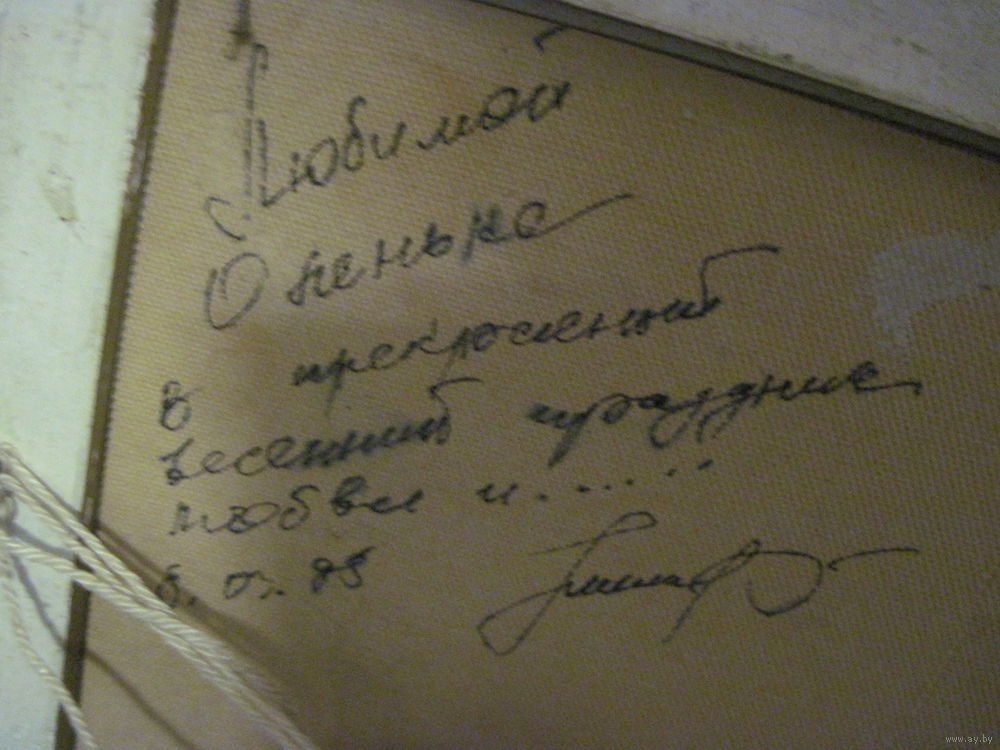 Любимой
Оленьке
в прекрасный
весенний праздник
любви и.....
8. 03. 95
www.ay.by